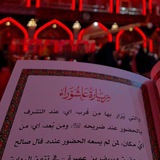 زيارة عاشوراء
والتي يُزار بها من قرب أي: عند التشرف
بالحضور عند ضريحه ومن بُعد أي من
أيّ مكان، لمن لم يسعه الحضور عنده. قال صالح